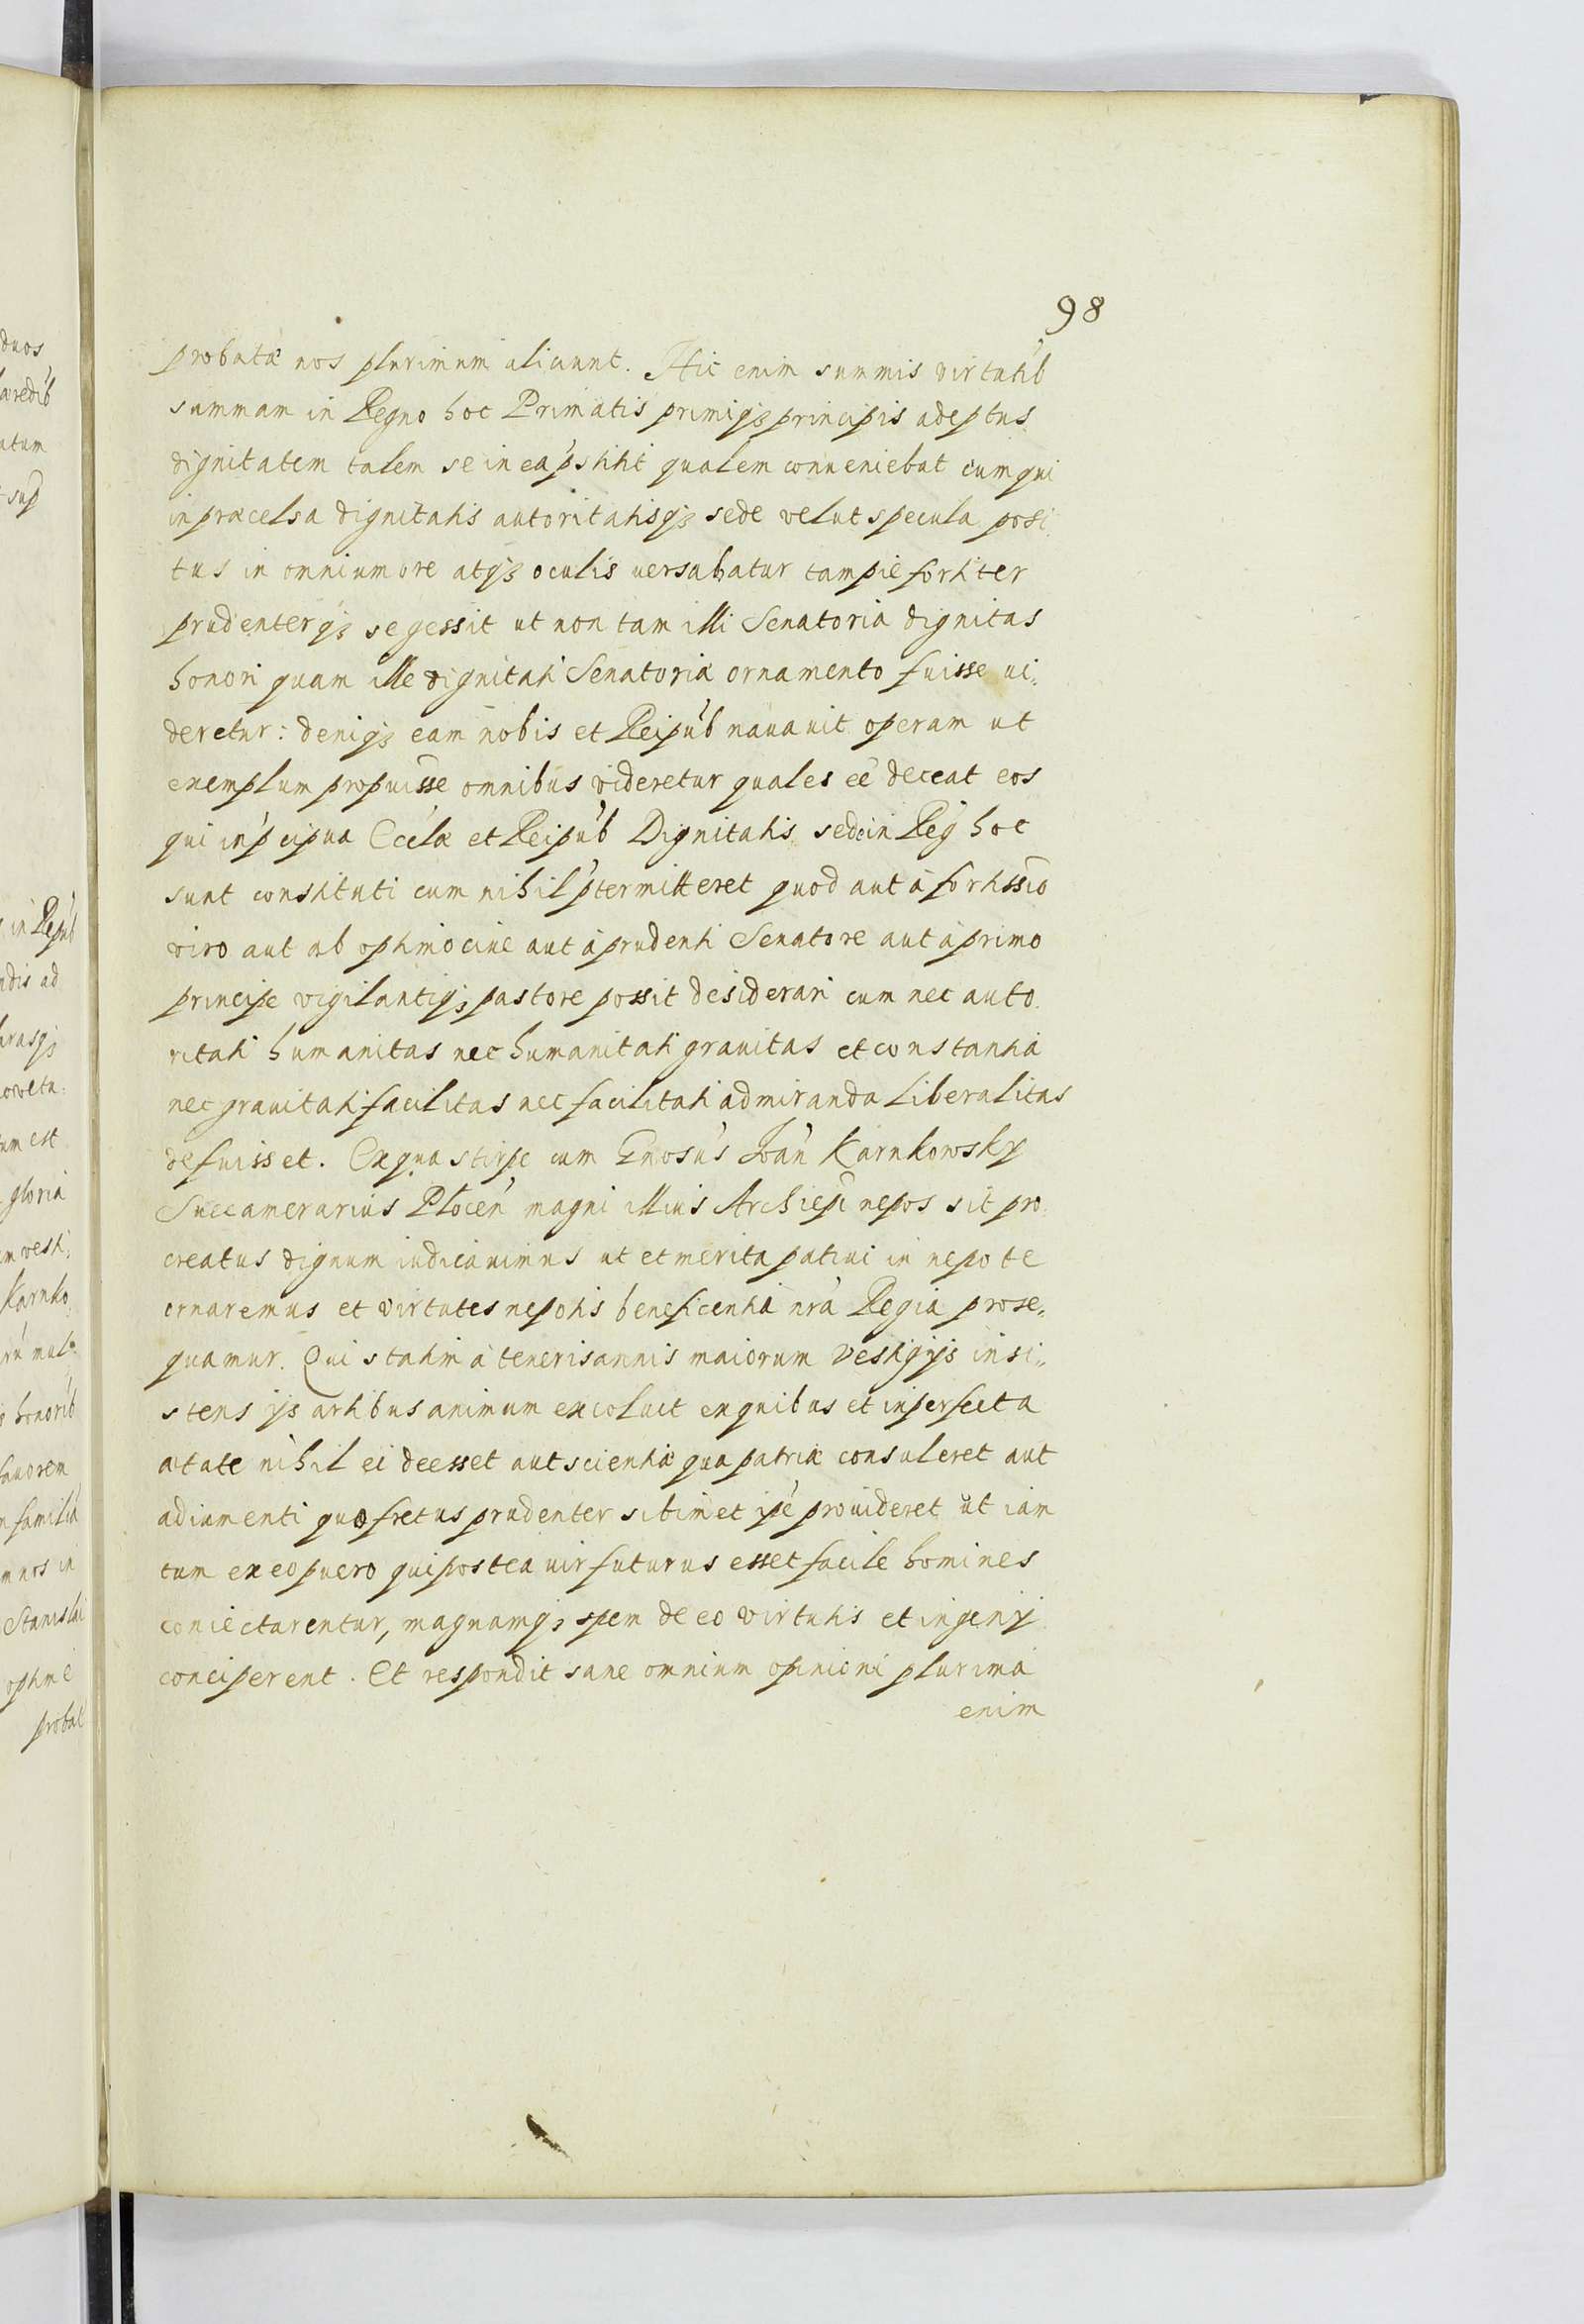 98
probatæ nos plurimum aliciunt. Hic enim summis virtutib
summam in Regno hoc Primatis primiqз principis adeptus
dignitatem talem se in ea p̃stitit qualem conueniebat eum qui
in præcelsa dignitatis autoritatisqз sede velut specula posi
tus in omnium ore atqз oculis uersabatur tam pie fortiter
prudenterqз se gessit ut non tam illi Senatoria dignitas
honori quam ille dignitati Senatoriæ ornamento fuisse ui„
deretur: deniqз eam nobis et Reipub́ nauauit operam ut
exemplum propuisse omnibus videretur quales eé deceat eos
qui in p̃cipua Eccĺæ et Reipub́ Dignitatis sede in Reg̃ hoc
sunt constituti cum nihil p̃termitteret quod aut à fortissio
viro aut ab optimo ciue aut à prudenti Senatore aut à primo
principe vigilantiqз pastore possit desiderari cum nec auto
ritati humanitas nec humanitati grauitas et constantia
nec grauitati facilitas nec facilitati admiranda liberalitas
defuisset. Ex qua stirpe cum Gnosús Joań Karnkowsky
Succamerarius Ploceń magni illius Archiepi nepos sit pro
creatus dignum iudicauimus ut et merita patrui in nepote
ornaremus et virtutes nepotis beneficentia nrá Regia prose„
quamur. Qui statim à teneris annis maiorum vestigijs insi„
stens ijs artibus animum excoluit ex quibus et in perfecta
ætate nihil ei deesset aut scientiæ qua patriæ consuleret aut
adiumenti quo fretus prudenter sibimet ipé prouideret ut iam
tum ex eo puero qui postea uir futurus esset facile homines
coniectarentur, magnamqз spem de eo virtutis et ingenij
conciperent. Et respondit sane omnium opinioni plurima
enim
duos
ædib́
atum
sup
in Repub́
ndis ad
trasqз
um est
gloria
Karnko
honorib́
fauorem
familiá
m nos in
Stanislai
optime
probat